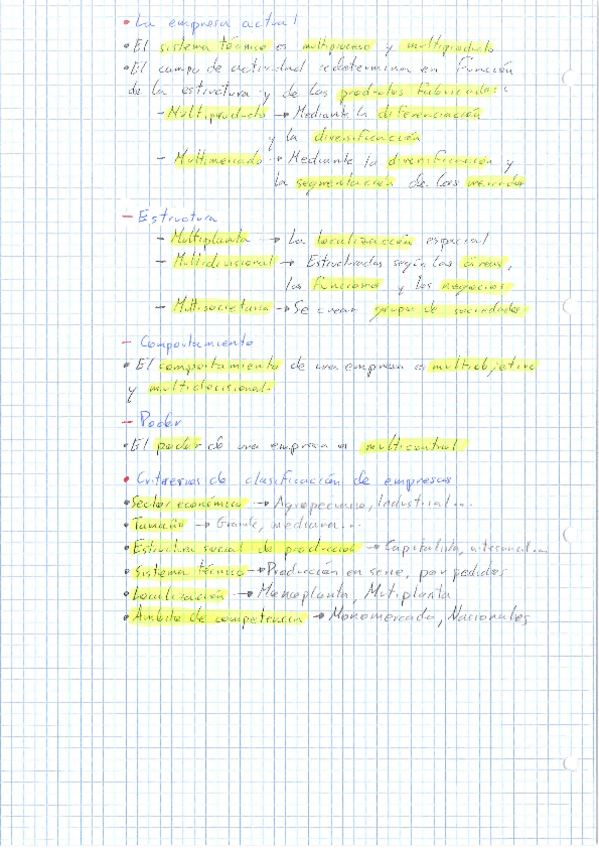 • La empresa actual
• El sistema técnico es multiproceso y multiproducto
• El campo de actividad se determina en función
de la estructura y de los productos fabricados:
– Multiproducto → Mediante la diferenciación
y la diversificación
– Multimercado → Mediante la diversificación y
la segmentación de los mercados
– Estructura
– Multiplanta → La localización espacial
– Multidivisional → Estructuradas según las áreas,
las funciones y los negocios
– Multisocietaria → Se crean grupos de sociedades
– Comportamiento
• El comportamiento de una empresa es multiobjetivo
y multidecisional.
– Poder
• El poder de una empresa es multicontrol
• Criterios de clasificación de empresas
• Sector económico → Agropecuario, Industrial...
• Tamaño → Grande, mediana...
• Estructura social de producción → Capitalista, artesanal...
• Sistema técnico → Producción en serie, por pedidos
• Localización → Monoplanta, Mutiplanta
• Ámbito de competencia → Monomercado, Nacionales